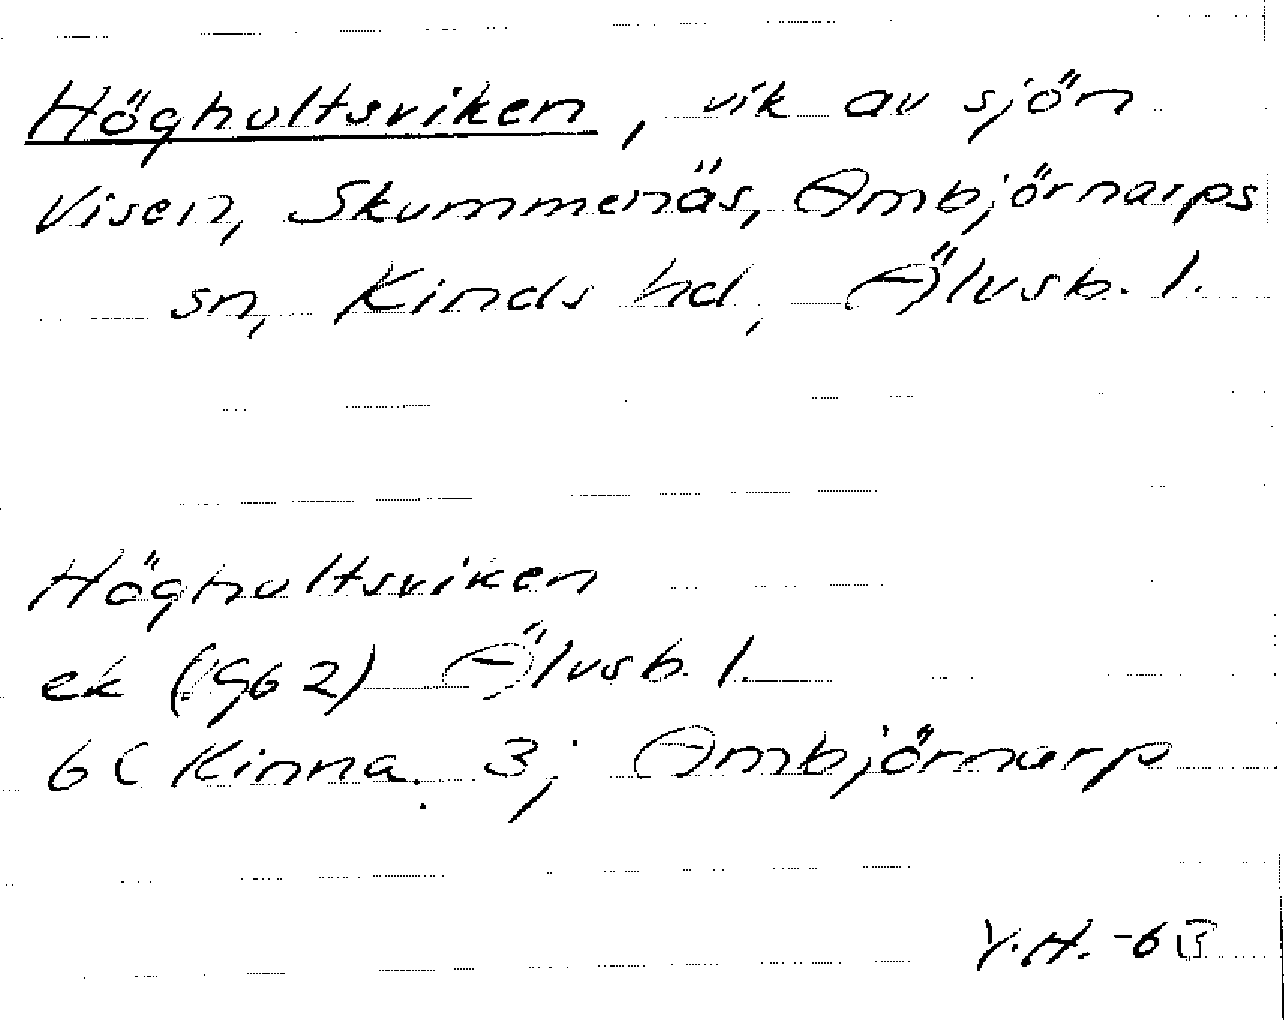 Höghultsviken, vik av sjön
Visen, Skummenäs, Ambjörnarps
sn, Kinds hd, Älvsb. l.
Höghultsviken
ek (1962) Älvsb. l.
6C Kinna. 3; Ambjörnarp
Y.H. -63